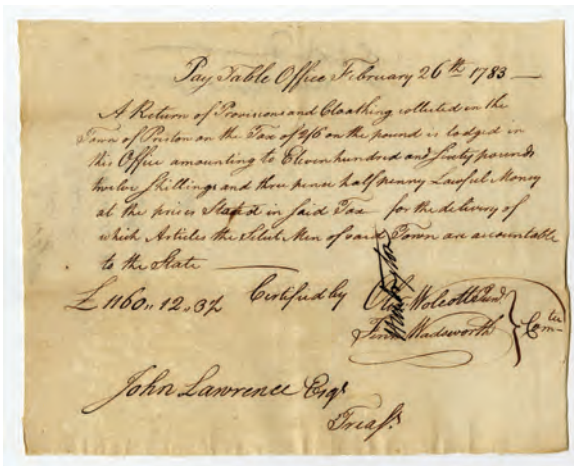 Pay Table Office February 26th 1783 —
A Return of Provisions and Cloathing collected in the
Town of Preston on the Tax of 2/6 on the pound is lodged in
this Office amounting to Eleven hundred and Sixty pounds
twelve Shillings and three pence half penny Lawful Money
at the prices Stated in said Tax for the delivery of
which Articles the Select Men of said Town are accountable
to the State —
£1160,,12,,3½ Certified by Olivr Wolcott Junr
Fenn Wadsworth } Comtee
John Lawrence Esqr
Treasr